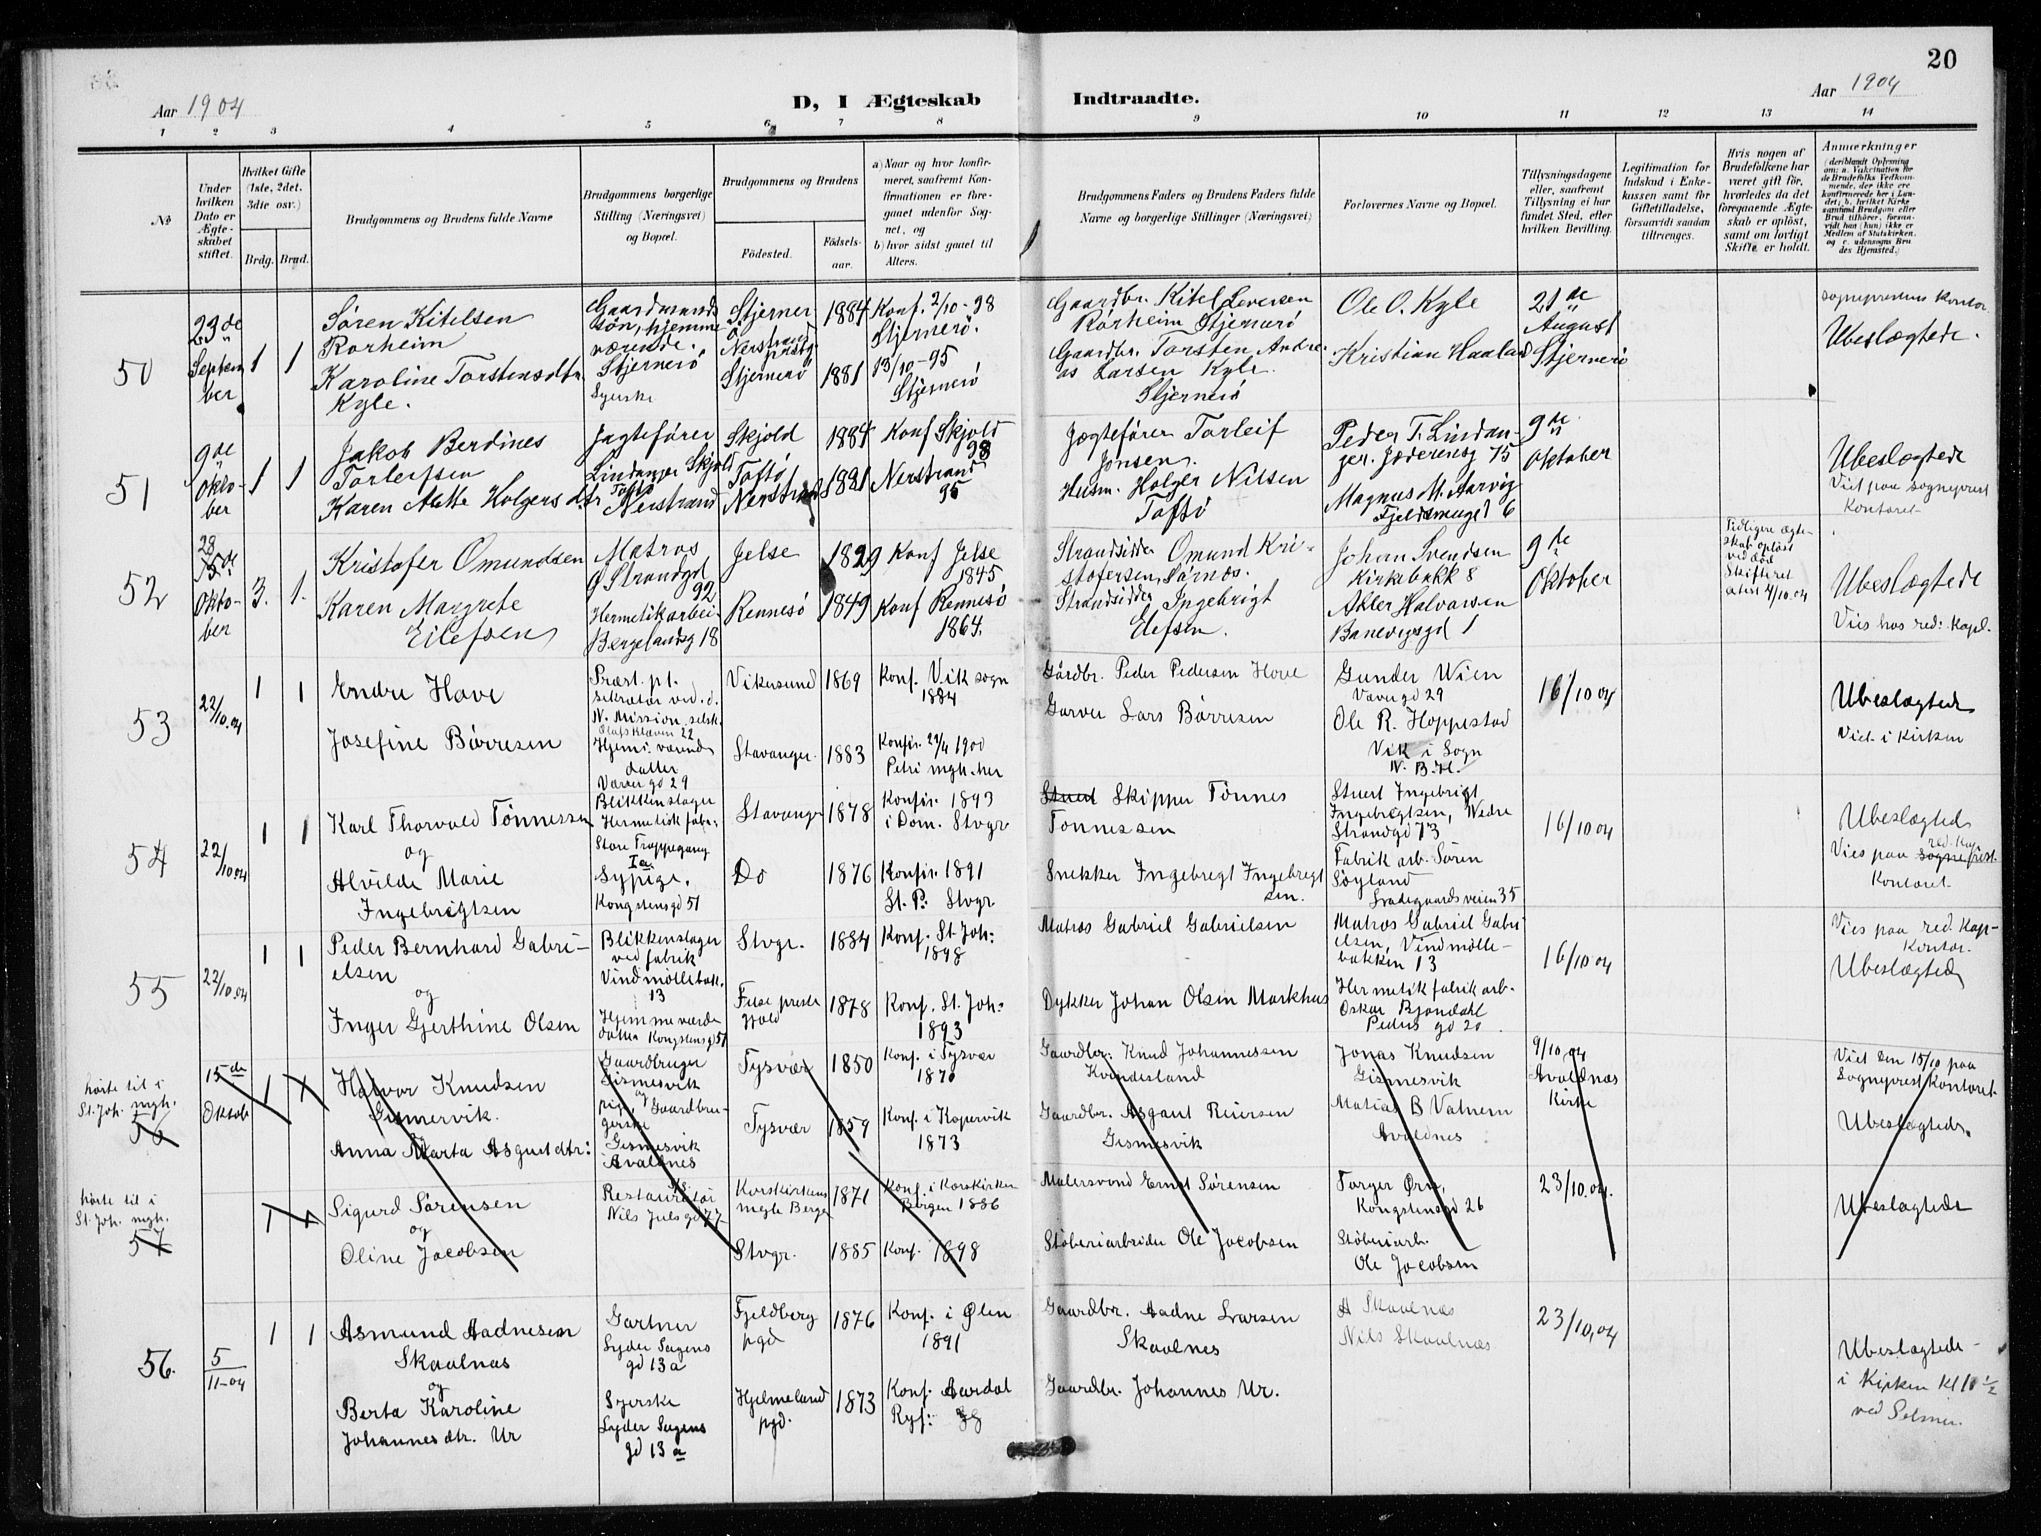 20
Aar 1904
D, I Ægteskab Indtraadte.
Aar 1904
1 2 3 4 5 6 7 8 9 10 11 12 13 14
No
Under hvilken Dato er Ægteskabet stiftet.
Hvilket Gifte (1ste, 2det, 3dte osv.)
Brdg. Brud.
Brudgommens og Brudens fulde Navne
Brudgommens borgerlige Stilling (Næringsvei) og Bopæl.
Brudgommens og Brudens
Födested.
Födselsaar.
a) Naar og hvor konfirmeret, saafremt Konfirmationen er foregaaet udenfor Sognet, og
b) hvor sidst gaaet til Alters.
Brudgommens Faders og Brudens Faders fulde Navne og borgerlige Stillinger (Næringsvei)
Forlovernes Navne og Bopæl.
Tillysningsdagene eller, saafremt Tillysning ei har fundet Sted, efter hvilken Bevilling.
Legitimation for Indskud i Enkekassen samt for Giftetilladelse, forsaavidt saadan tiltrænges.
Hvis nogen af Brudefolkene har været gift för, hvorledes da det foregaaende Ægteskab er oplöst, samt om lovligt Skifte er holdt.
Anmerkninger
(deriblandt Oplysning om: a. Vaccination for de Brudefolks Vedkommende, der ikke ere konfirmerede her i Landet; b. hvilket Kirkesamfund Brudgom eller Brud tilhörer, forsaavidt han (hun) ikke er Medlem af Statskirken, og c. udensogns Brudes Hjemsted.)
50
23de
Septem
ber
1 1
Søren Kitelsen
Rorheim
Karoline Torstensdtr
Kyle.
Gaardmands
søn, hjemme
værende.
Stjernerö
Syerske
Stjerner
ö
Nerstrand
prstg
Stjernerö
1884
1881
Konf. 2/10-98
Stjernerö.
13/10-95
Stjernerö
Gaardbr. Kitel Seversen
Rörheim Stjernerö
Gaardbr. Torsten Andre
as Larsen Kyle.
Stjernerö
Ole O. Kyle
Kristian Haaland
21de
August
Stjernerö
sogneprestens Kontor
Ubeslægtede.
51
9de
Okto-
ber
1 1
Jakob Berdines
Torleifsen
Karen Aatte Holgersdtr
Jagtefører
Lindanger Skjold
Toftö
Nerstrand
Skjold
Toftö
Nerstrand
1884
1821
Konf Skjold
98
Nerstrand
95
Jægtefører Torleif
Jonsen.
Husm. Holger Nilsen
Toftö
Peder T. Lindan-
ger. Jæderensg 15
Magnus M. Aarvig
Fjeldsmuget 6
9de
Oktober
Ubeslægtede
Viet paa sogneprest
Kontoret
52
23
15de
Okto-
ber
3. 1.
Kristofer Omundsen
Karen Margrete
Eilefsen
Matros
Ø Strandgd
92
Hermetikarbei-
Bergelandsg 18
Jelse
Rennesö
1829
1849
Konf Jelse
1845
Konf Rennesö
1864.
Strandsidder Omund Kri-
stofersen, Sørnæs.
Strandsidder Ingebrigt
Elefsen.
Johan Svendsen
Kirkebakk 8
Akler Halvorsen
Banevigsgd 1
9de
Oktober
Tidligere ægte-
skab opløst
ved død
Skifteret
attest 4/10.04
Ubeslægtede
Vies hos red: Kapl.
53
22/10.04
1 1
Endre Hove
Josefine Börresen
Præst. p.t.
sekretær ved. d.
N. Mission. selsk.
Olafskleven 22
Hjem. værende
datter
Væver gd 29
Vikesund
Stavanger.
1869
1883
Konf. Vik sogn
1884
Konfir. 22/4 1900
Petri mgh. her
Gårdbr. Peder Pedersen Hove
Garver Lars Börresen
Gunder Wien
Væver gd 29
Ole R. Hoppestad
Vik i Sogn
N. B.H.
16/10 04
Ubeslægtede
Viet i Kirken
54
22/10 04
1 1
Karl Thorvald Tönnessen
og
Alvilde Marie
Ingebrigtsen
Blikkenslager
Hermetisk fabr.
Store Trappegang
1a.
Sypige.
Kongstensgd 51
Stavanger
Do
1878
1876
Konfir. 1893
i Dom. Stvgr
Konfir. 1891
St. P. Stvgr.
Stuert Skipper Tönnes
Tonnessen
Snekker Ingebregt Ingebregt
sen.
Stuert Ingebrigt
Ingebrigtsen, Nedre
Strandgd 73
Fabrik arb. Sören
Söyland
Ladegaardsveien 35
16/10 04
Ubeslægtede
Vies paa red. Kap. sogneprest.
Kontoret.
55
22/10.04
1 1
Peder Bernhard Gabri-
elsen
og
Inger Gjerthine Olsen
Blikkenslager
ved fabrik
Vindmöllebak.
13
Hjemmeværde
datter Kongstensgd 51
Stvgr.
1884
1878
Konf. St. Joh:
1898
Konf. St. Joh:
1893
Matros Gabriel Gabrielsen
Dykker Johan Olsen Markhus
Matros Gabriel Gabri
elsen, Vindmölle-
bakken 13
Hermetikfabrik arb.
Oskar Bjondahl
Peders gd 20
16/10 04
Vies paa red. Kap-
Kontor.
Ubeslægtede
hörte til i
St. Joh. mgh.
56
15de
Oktob
1 1
Halvor Knudsen
Gismervik.
Anna Marta Asgautdtr:
Gaardbruger
Gismesvik
og
pige, Gaardbru-
gerske
Gismesvik
Avaldnes
Tysvær
Tysvær
1850
1859
Konf. i Tysvær
1870
Konf. i Kopervik
1873
Gaardbr. Knud Johannessen
Kvindesland
Gaardbr. Asgaut Reiersen
Gismesvik
Jonas Knudsen
Gismesvik
Matias B Vatnem
Avaldnes
9/10.04
Avaldnæs
Kirke
Viet den 15/10 paa
Sogneprest Kontoret.
Ubeslægtede.
hörte til i
St. Joh. mgh.
57
1 1
Sigurd Sörensen
og
Oline Jacobsen
Restauratör
Nils Juels gd 77
Korskirkens
megh Bergen
Stvgr.
1871
1885
Konf. i Korskirken
Bergen 1886
Konf. 1898
Malersvend Ernst Sörensen
Stöberiarbeider Ole Jacobsen
Torger Örn,
Kongstensgd 26
Stöberiarb.
Ole Jacobsen
23/10.04.
Ubeslægtede
56.
5/11-04
1 1
Asmund Aadnesen
Skaalnæs
og
Berta Karoline
Johannesdtr. Ur
Gartner
Lyder Sagens
gd 13a
Syerske
Lyder Sagens
gd 13a
Fjeldberg
pgd
Hjelmeland
pgd.
1876
1873
Konf. i Ølen
1891
Konf. Aardal
Ryf: 88
Gaardbr. Aadne Larsen
Skaalnes
Gaardbr. Johannes Ur.
A Skaalnæs
Nils Skaalnæs
23/10,04
Ubeslægtede -
i Kirken kl 11 1/2
ved Selmer.